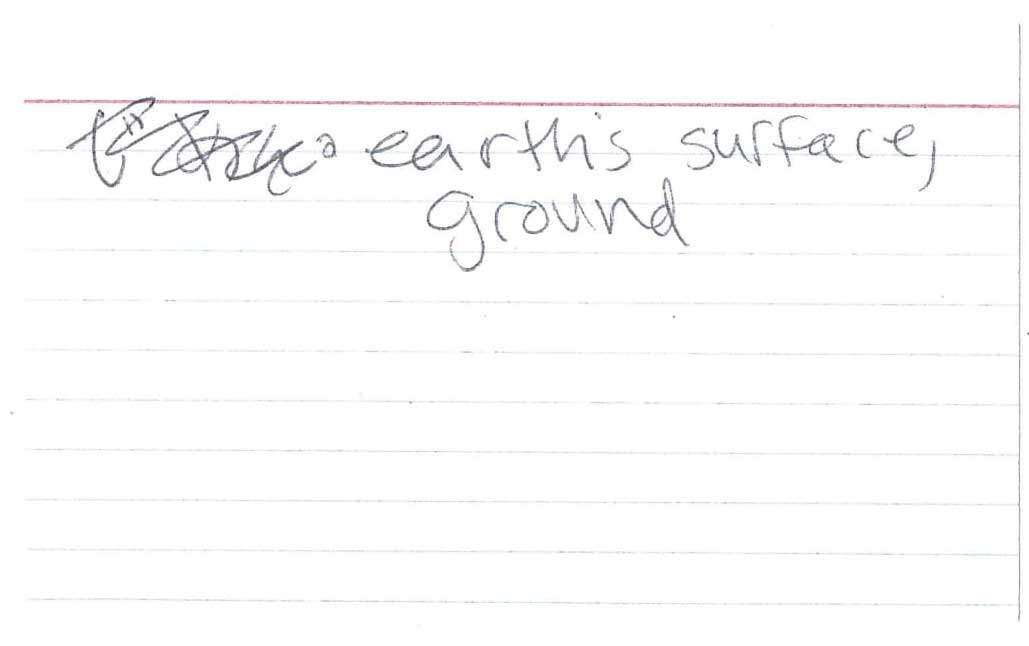 earth's surface,
ground